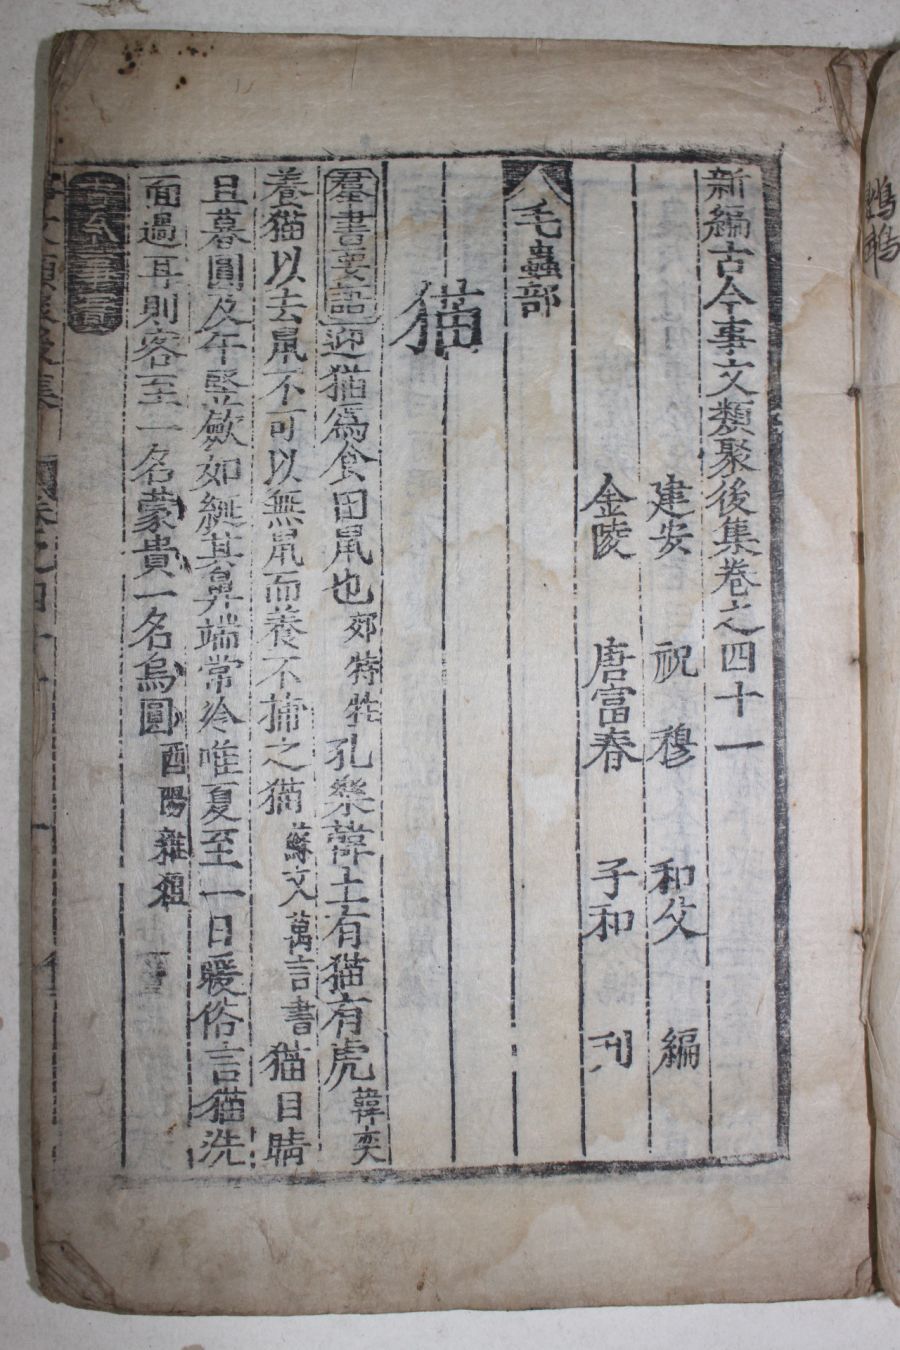 新編古今事文類聚後集卷之四十一
建安 祝穆 和父 編
金陵 唐富春 子和 刊
毛蟲部
猫
羣書要語迎猫爲食田鼠也郊特牲孔樂韓土有猫有虎韓奕
養猫以去鼠不可以無鼠而養不捕之猫蘇文萬言書猫目睛
旦暮圓及午竪斂如綖其鼻端常冷唯夏至一日暖俗言猫洗
面過耳則客至一名蒙貴一名烏圓酉陽雜俎
古今事實